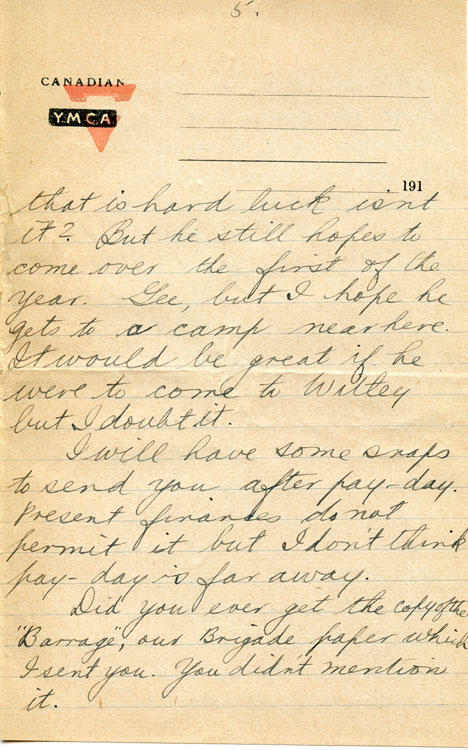 5.
CANADIAN
YMCA
191
that is hard luck isnt
it? But he still hopes to
come over the first of the
year. Gee, but I hope he
gets to a camp near here.
It would be great if he
were to come to Witley
but I doubt it.
I will have some snaps
to send you after pay-day.
Present finances do not
permit it but I don't think
pay-day is far away.
Did you ever get the copy of the
"Barrage", our Brigade paper which
I sent you. You didnt mention
it.